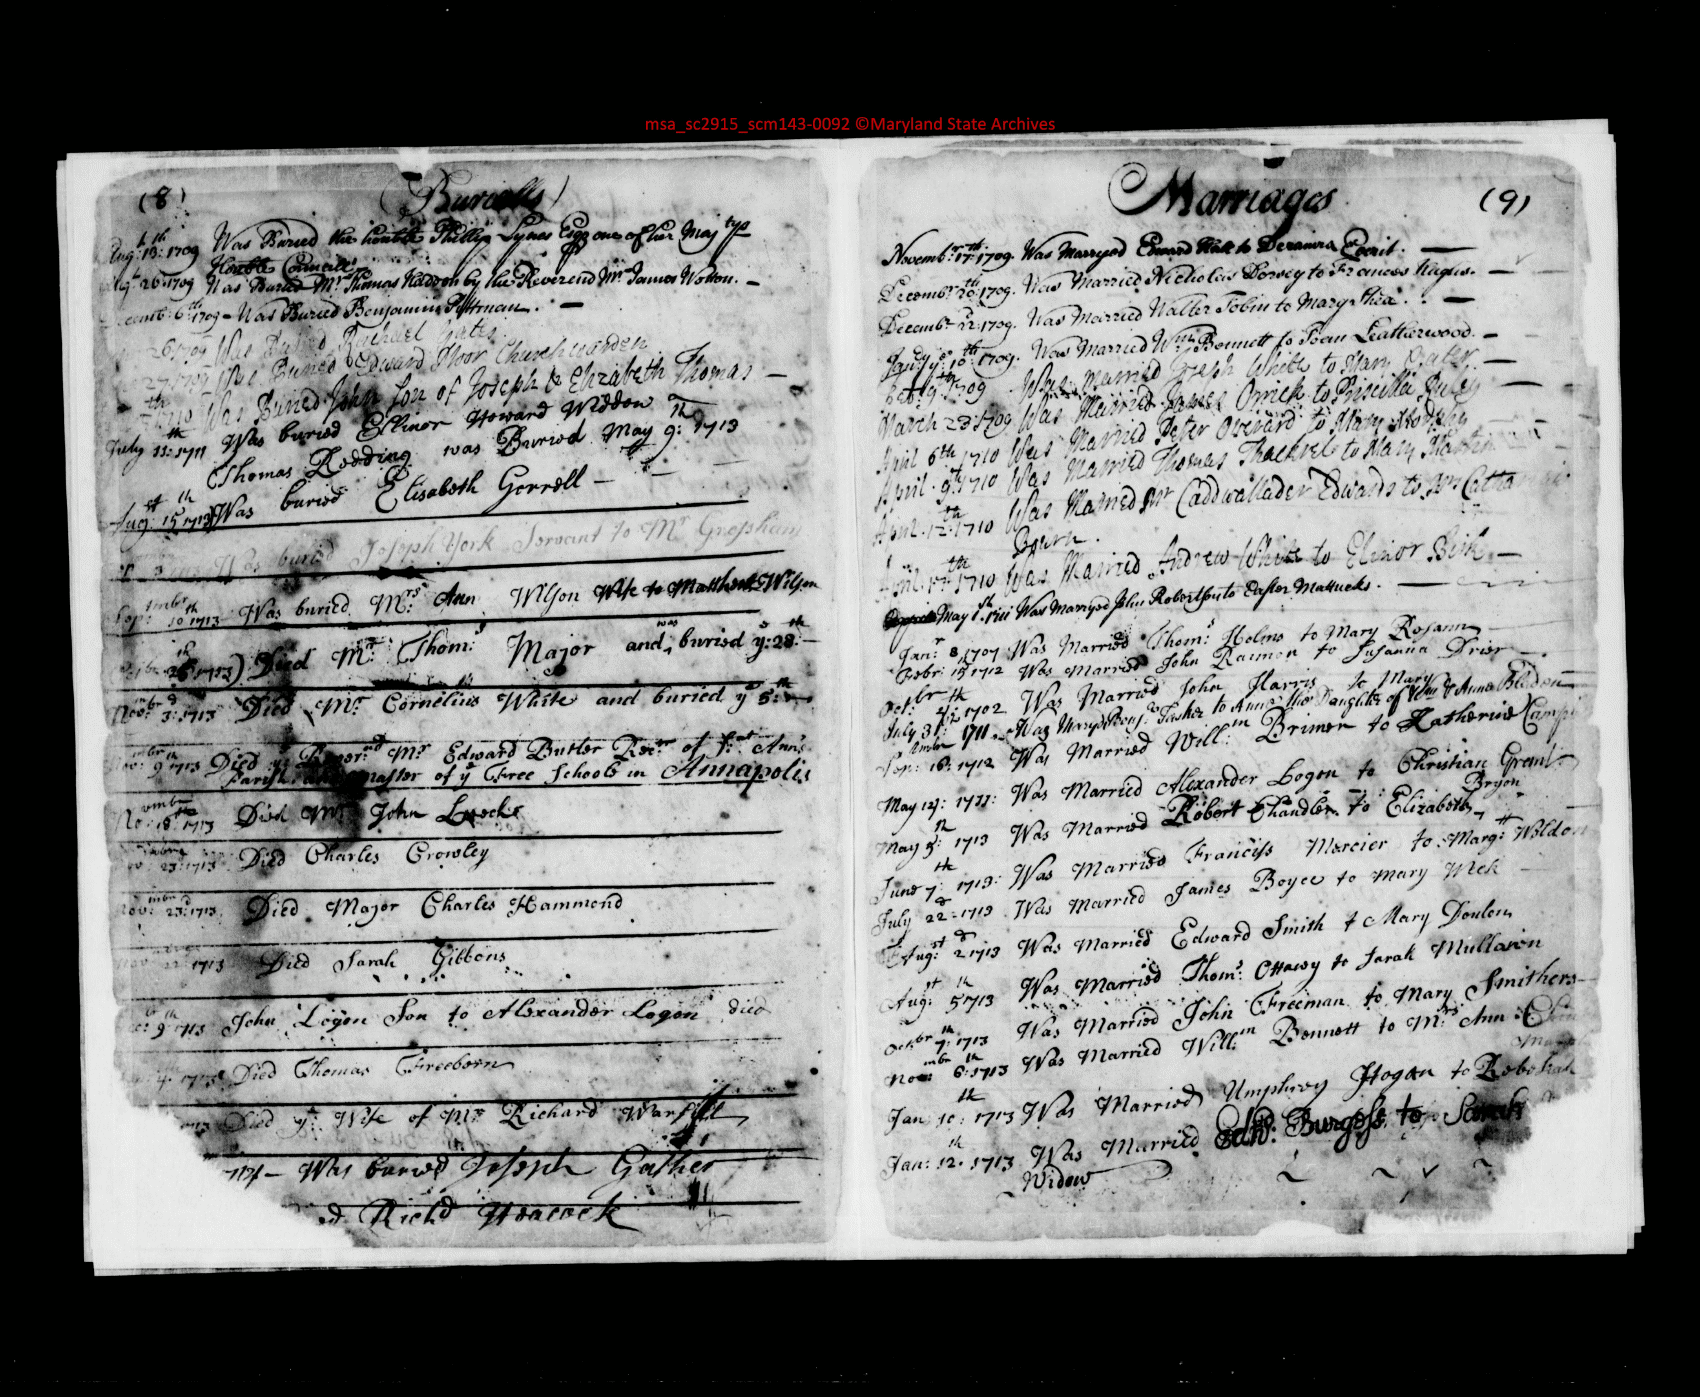 msa_sc2915_scm143-0092 ©Maryland State Archives
(8)
Burialls)
Aug: 18th: 1709 Was Buried the honble Phillip Lynes Esqr one of her Majtys
Honble Councill
26: 1709 Was Buried Mr Thomas by the Reverend Mr James Wotton. -
Decemb: 6th 1709 - Was Buried Benjamin Pittman. -
26 1709 Was Buried Rachael
27 1709 Was Buried Edward Floor Churchwarden
1710 Was Buried John Son of Joseph & Elizabeth Thomas -
July 11th: 1711 Was buried Ellinor Howard Widdow
Thomas Redding was Buried May 9th: 1713
Augst: 15th 1713 Was buried Elisabeth Gerrell -
3 1713 Was buried Joseph York Servant to Mr Gresham
Sepmbr: 10th 1713 Was buried Mrs: Ann Wilson Wife to Matthew Wilson
26th 1713) Died Mr: Thom: Major and was buried ye: 28th: -
Novmbr: 3d: 1713 Died Mr Cornelius White and buried ye 5th:
Novmbr: 9th 1713 Died ye Revernd Mr Edward Butler Recr of St: Ann's
Parish and master of ye Free Schools in Annapolis
Novmbr: 18th: 1713 Died Mr John
Nov: 23: 1713 Died Charles Crowley
Novmbr: 23d: 1713 Died Major Charles Hammond
Nov 22 1713 Died Sarah Gibbons
9th 1713 John Logon Son to Alexander Logon died
4 1713 Died Thomas Freeborn
1713 Died ye Wife of Mr Richard Warfill
- Was buried Joseph Gather
d Richd
Marriages
(9)
Novembr: 17th: 1709. Was Marryed Edward Hall to
Decembr 20th: 1709. Was Married Nicholas Dorsey to Frances Hughs. -
Decembr 22: 1709. Was Married Walter Tobin to Mary Shea. -
Jandy ye 10th: 1709. Was Married Wm Bennett to Joan Leatherwood. -
Feb: 9th 1709 Was Married Joseph White to Mary -
March 23: 1709 Was Married James Orrick to Priscilla Ruley
April 6th 1710 Was Married Peter Overard to Mary
April. 9th 1710 Was Married Thomas Thackrel to Mary Martin
April. 12th: 1710 Was Married Mr Caddwallader Edwards to Mrs
April. 17th: 1710 Was Married Andrew White to Elinor -
May Was Marryed John Robertson to Easter Mattucks. -
Janr: 8 1707 Was Married Thoms: Holms to Mary Rosann
Febr: 15 1712 Was Married John Raimon to Susanna Drier -
Octbr: 4th: 1702 Was Married John Harris to Mary
July 31st 1711 Was Marryd Benj: Tasker to Anne the Daughter of Wm & Anne Bladen
Sepmbr: 16: 1712 Was Married Willm: Brimer to Katherine
May 19: 1711: Was Married Alexander Logon to Christian Grant
May 5th: 1713 Was Married Robert Chandler to Elizabeth Bryon
June 7th: 1713: Was Married Franciss Mercier to Margtt: Weldon
July 22d: 1713 Was Married James Boyce to Mary Mek
Augst: 2d 1713 Was Married Edward Smith to Mary
Augst: 5th 1713 Was Married Thoms: Ottawy to Sarah
Octobr 7th: 1713 Was Married John Freeman to Mary Smithers
Novmbr: 6th: 1713 Was Married Willm: Bennett to Mrs Ann
Jan: 10th: 1713 Was Married Umphrey Hogan to Rebekah
Jan: 12th: 1713 Was Married Edwd: Burgess to Sarah
Widow